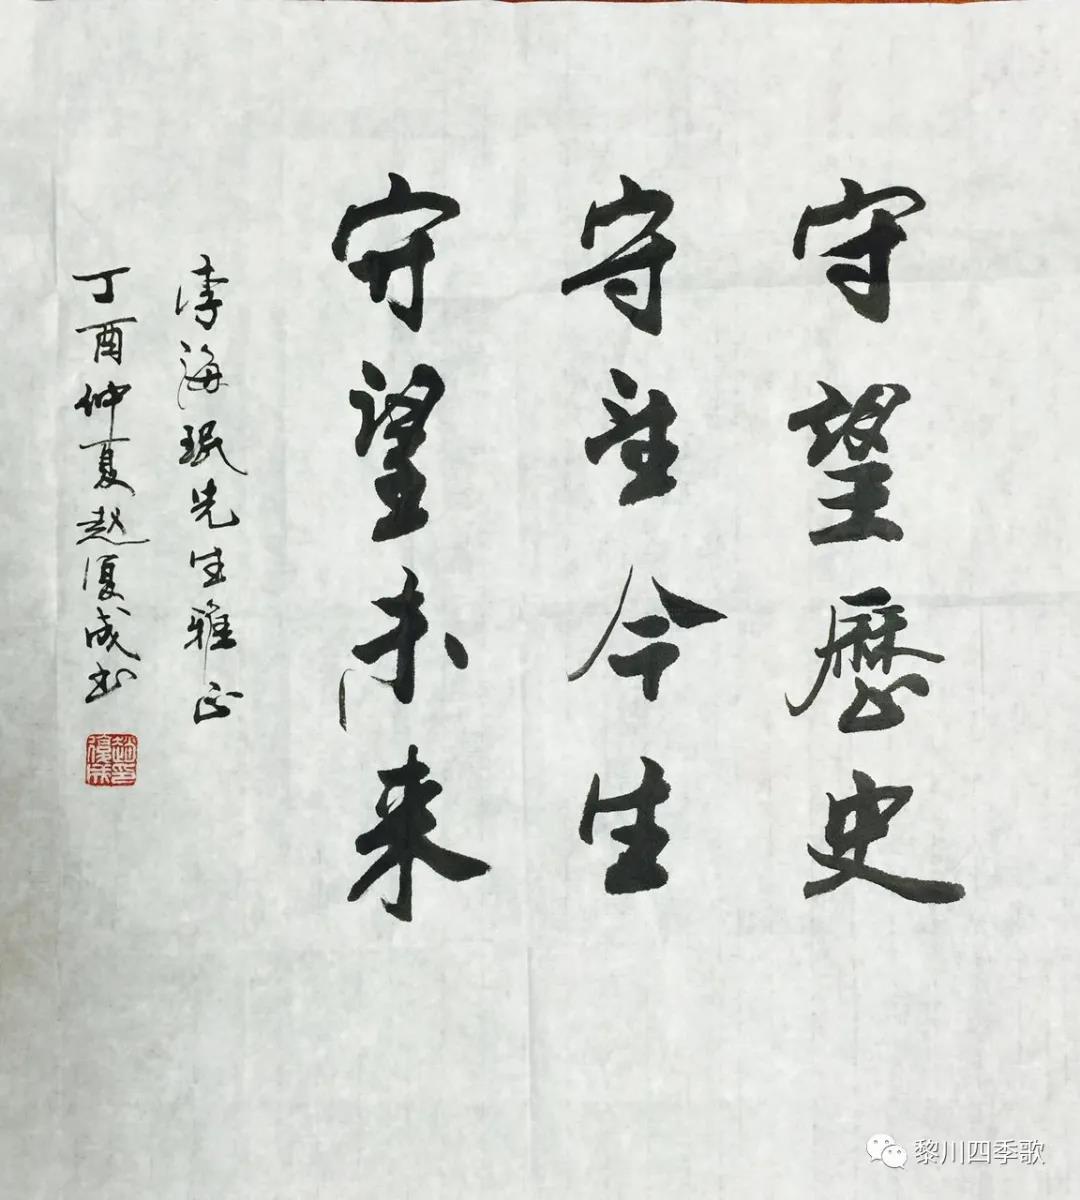 守望歷史
守望今生
守望未来
李海珉先生雅正
丁酉仲夏赵復成书
趙復成印
黎川四季歌